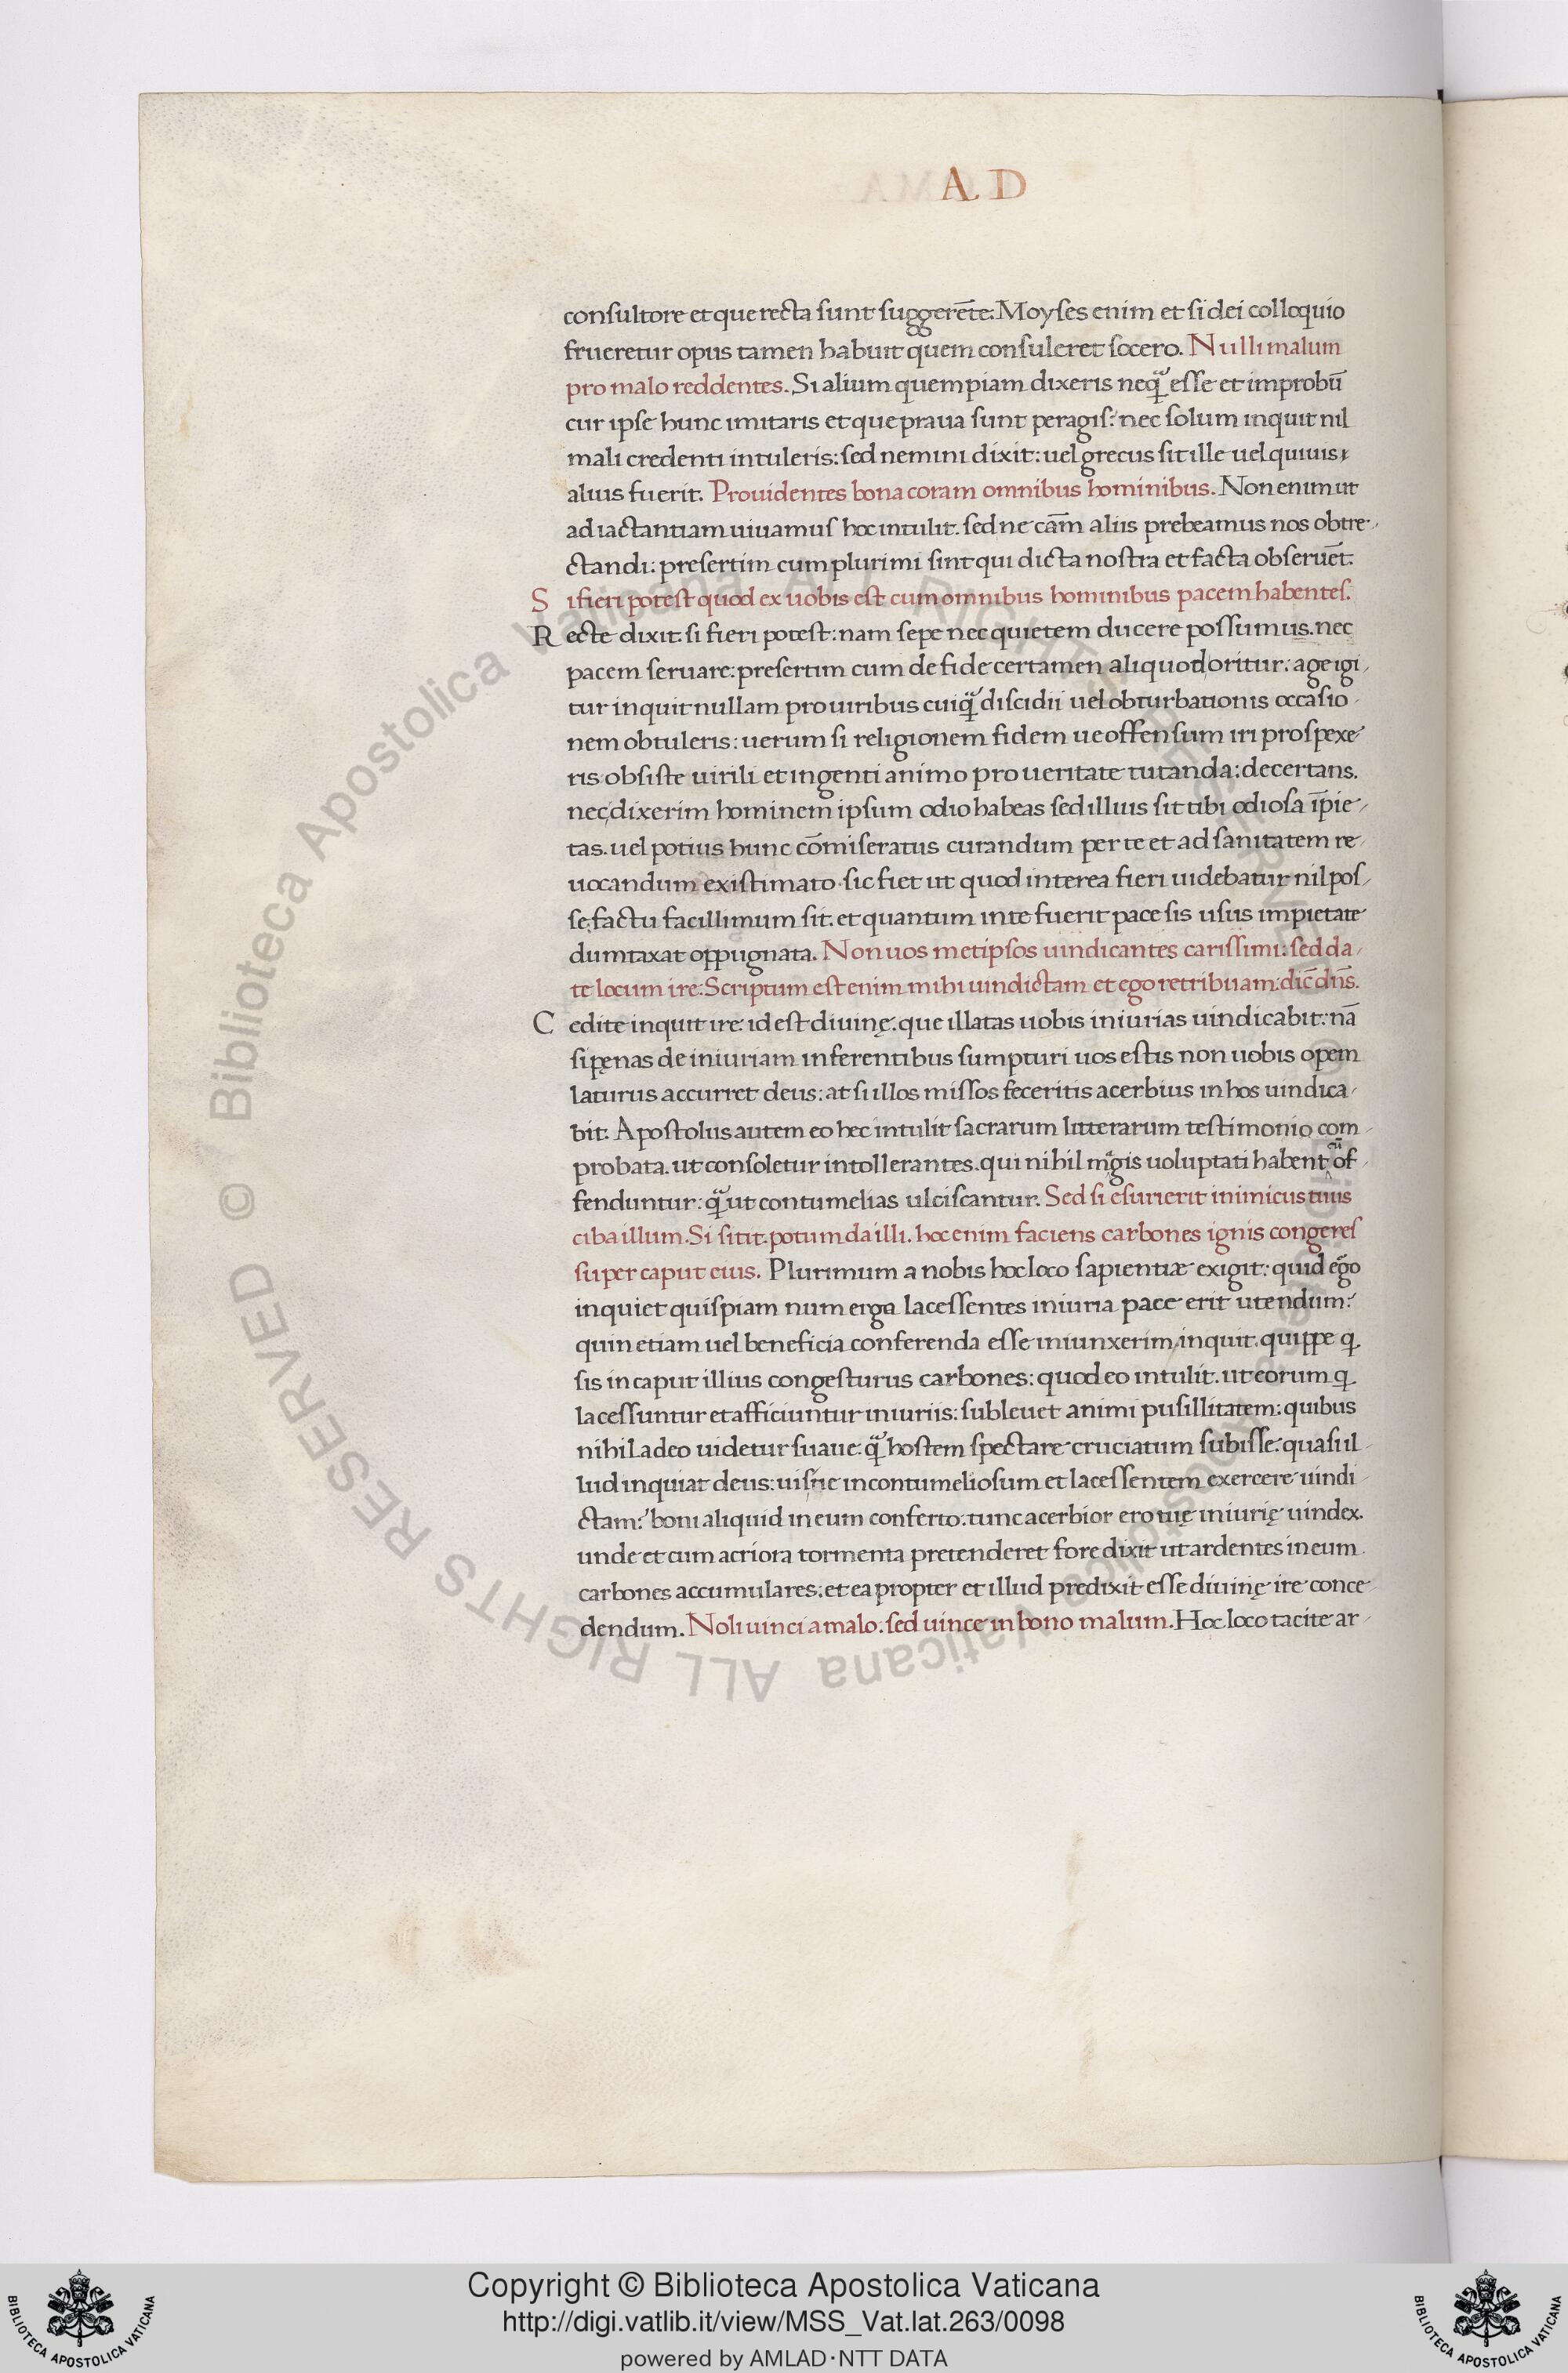 A. D
consultore et que recta sunt suggerēte. Moyses enim et si dei colloquio
frueretur opus tamen habuit quem consuleret socero. Nulli malum
pro malo reddentes. Si alium quempiam dixeris neqꝫ̄ esse et improbū
cur ipse hunc imitaris et que praua sunt peragis: nec solum inquit nil
mali credenti intuleris: sed nemini dixit: uel grecus sit ille uel quiuis
alius fuerit. Prouidentes bona coram omnibus hominibus. Non enim ut
ad iactantiam uiuamus hoc intulit. sed ne cām aliis prebeamus nos obtre-
ctandi: presertim cum plurimi sint qui dicta nostra et facta obseruēt.
Si fieri potest quod ex uobis est cum omnibus hominibus pacem habentes.
Recte dixit si fieri potest: nam sepe nec quietem ducere possumus. nec
pacem seruare: presertim cum de fide certamen aliquod oritur: age igi-
tur inquit nullam pro uiribus cuiqᷓ discidii uel obturbationis occasio-
nem obtuleris: uerum si religionem fidem ue offensum iri prospexe-
ris obsiste uirili et ingenti animo pro ueritate tutanda: decertans.
nec dixerim hominem ipsum odio habeas sed illius sit tibi odiosa īpie-
tas. uel potius hunc cōmiseratus curandum per te et ad sanitatem re-
uocandum existimato. sic fiet ut quod interea fieri uidebatur nil pos-
se: factu facillimum sit. et quantum in te fuerit pace sis usus impietate
dumtaxat oppugnata. Non uos metipsos uindicantes carissimi: sed da-
te locum ire: Scriptum est enim mihi uindictam et ego retribuam: dic̄ dn̄s.
Cedite inquit ire: id est diuinę. que illatas uobis iniurias uindicabit: nā
si pęnas de iniuriam inferentibus sumpturi uos estis non uobis opem
laturus accurret deus: at si illos missos feceritis acerbius in hos uindica-
bit. Apostolus autem eo hec intulit sacrarum litterarum testimonio com-
probata. ut consoletur intollerantes. qui nihil mᷓgis uoluptati habent cū of-
fenduntur: qᷓ ut contumelias ulciscantur. Sed si esurierit inimicus tuus
ciba illum. Si sitit. potum da illi. hoc enim faciens carbones ignis congeres
super caput eius. Plurimum a nobis hoc loco sapientiæ exigit: quid eᷓgo
inquiet quispiam num erga lacessentes iniuria pace erit utendum?
quin etiam uel beneficia conferenda esse iniunxerim inquit. quippe ꝗ
sis in caput illius congesturus carbones: quod eo intulit. ut eorum ꝗ
lacessuntur et afficiuntur iniuriis: subleuet animi pusillitatem: quibus
nihil adeo uidetur suaue: qᷓ hostem spectare cruciatum subisse. quasi il-
lud inquiat deus: uisne in contumeliosum et lacessentem exercere uindi-
ctam? boni aliquid in eum conferto. tunc acerbior ero tuę iniurię uindex.
unde et cum acriora tormenta pretenderet fore dixit ut ardentes in eum
carbones accumulares. et ea propter et illud predixit esse diuinę ire conce-
dendum. Noli uinci a malo. sed uince in bono malum. Hoc loco tacite ar-
© Biblioteca Apostolica Vaticana ALL RIGHTS RESERVED
Copyright © Biblioteca Apostolica Vaticana
http://digi.vatlib.it/view/MSS_Vat.lat.263/0098
powered by AMLAD·NTT DATA
BIBLIOTECA APOSTOLICA VATICANA
BIBLIOTECA APOSTOLICA VATICANA